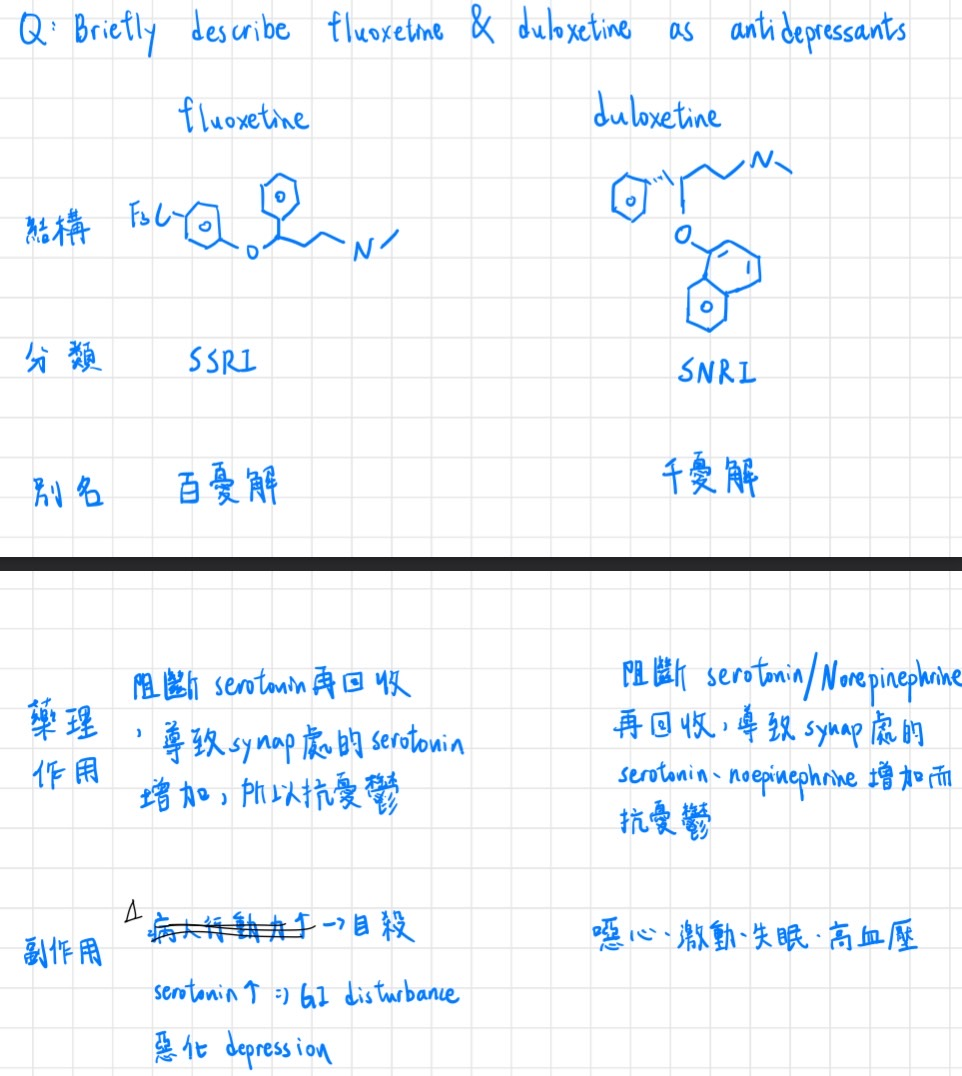 Q: Briefly describe fluoxetine & duloxetine as antidepressants
fluoxetine
duloxetine
結構
F3C
O
N
N
O
分類
SSRI
SNRI
別名
百憂解
千憂解
藥理
作用
阻斷 serotonin 再回收
，導致 synap 處的 serotonin
增加，所以抗憂鬱
阻斷 serotonin/Norepinephrine
再回收，導致 synap 處的
serotonin、noepinephrine 增加而
抗憂鬱
副作用
△ 病人行動力↑ → 自殺
serotonin↑ => GI disturbance
惡化 depression
噁心、激動、失眠、高血壓